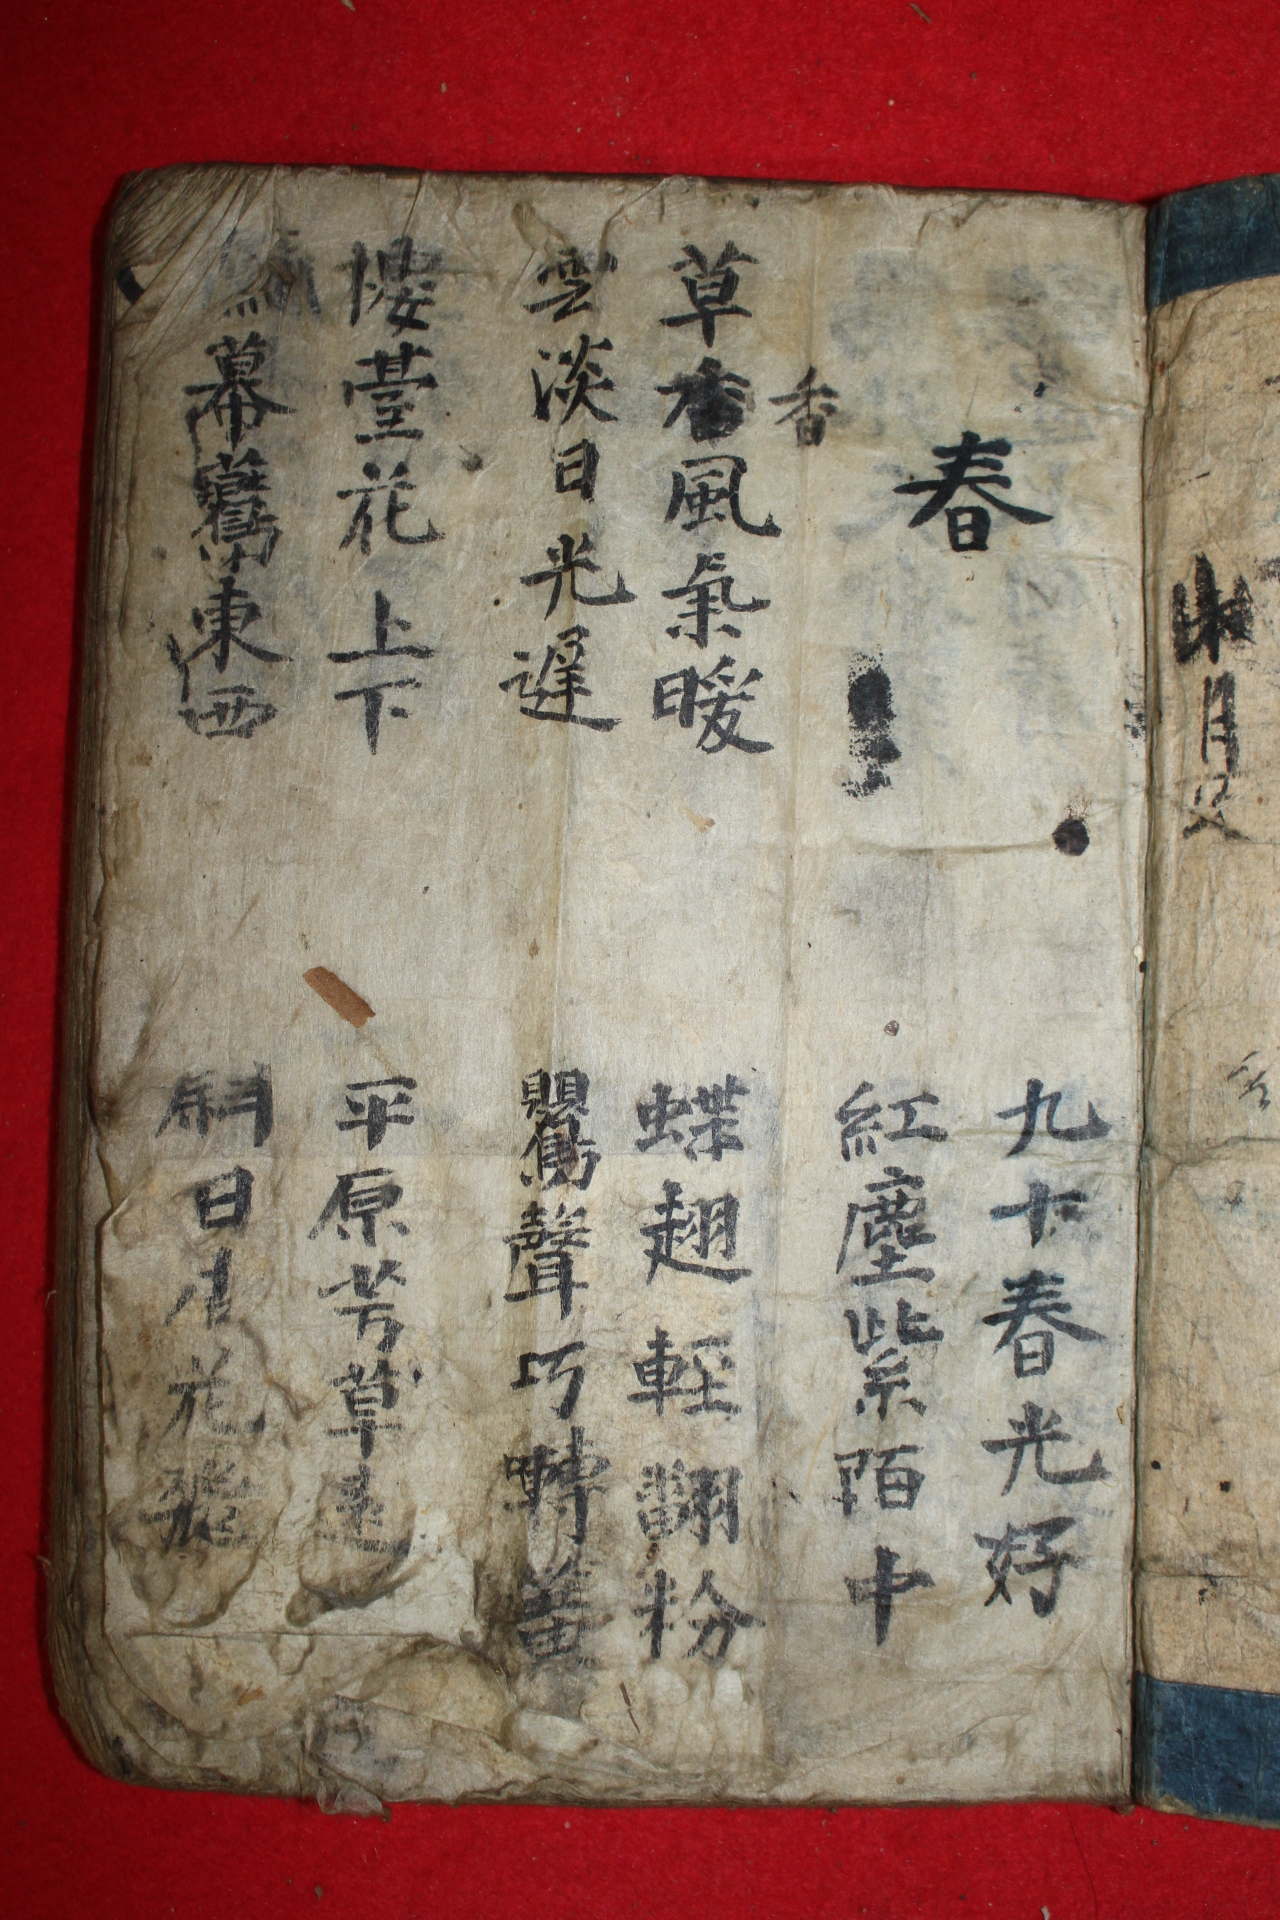 春
九十春光好
紅塵紫陌中
草香風氣暖
香
蝶翅輕翻粉
雲淡日光遲
鸎聲巧轉黃
樓臺花上下
平原芳草遠
幕鸎東西
日 花發
月又